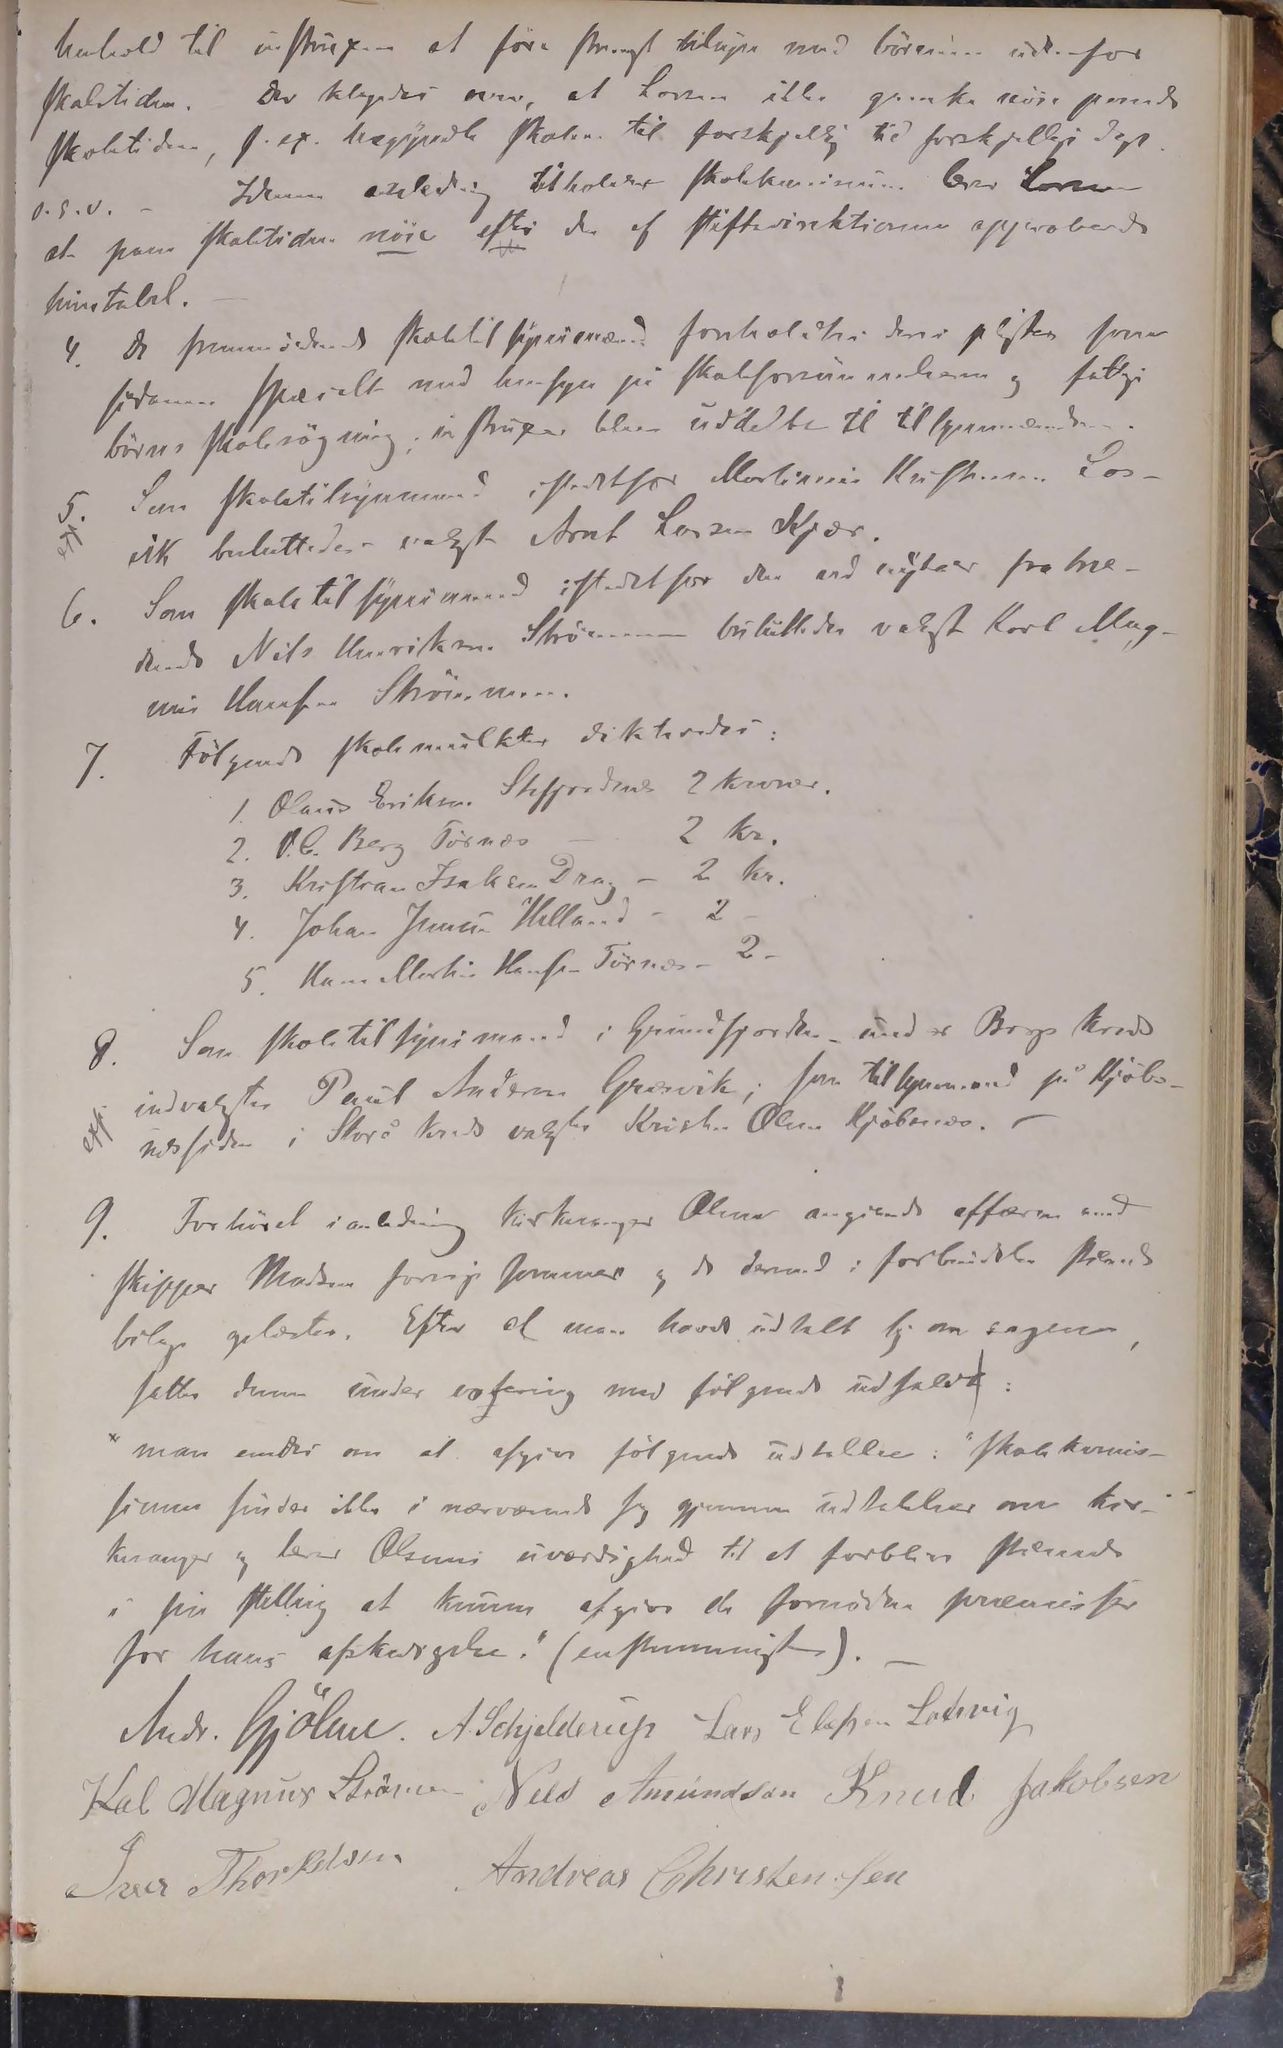 henhold til instruxen at føre strengt tilsyn med börnene udenfor
skoletiden. Der klagedes over, at Larsen ikke ganske nöie passede
skoletiden, f. ex. begyndte skolen til forskjellig tid forskjellige dage
o. s. v. – I denne anledning tilholder skolekommissionen lærer Larsen
at passe skoletiden nöie efter den af stiftsdirektionen approberede
timetabel. –
4. De fremmödende skoletilsynsmænd foreholdtes deres pligter som
sådanne specielt med hensyn på skoleforsömmelserne og fattige
börns skolesögning; instruxer blev uddelte til tilsynsmændene.
5. Som skoletilsynsmand istedetfor Martinus Kristensen Los-
exp.
vik besluttedes valgt Arnt Larsen Kjær.
6. Som skoletilsynsmand istedetfor den ved nytaar fratræ-
dende Nils Henriksen Strömmen besluttedes valgt Karl Mag-
nus Hansen Strömmen.
7. Fölgende skolemulkter dikteredes:
1. Olaus Eriksen Stefjordnes 2 kroner.
2. O. C. Berg Törnæs – 2 kr.
3. Kristian Isaksen Drag – 2 kr.
4. Johan Jensen Helland – 2 –
5. Hans Martin Hansen Törnæs – 2 –
8. Som skoletilsynsmand i Grundfjorden under Bogs kreds
indvalgtes Paul Andersen Græsvik; som tilsynsmand på Kjöbs-
exp.
næssiden i Storå kreds valgtes Kristen Olsen Kjöbsnæs. –
9. Forhöret i anledning kirkesanger Olsens angivende affære med
skipper Madsen forrige sommer og de dermed i forbindelse stående
bilage oplæstes. Efter at man havde udtalt sig om sagen,
sattes denne under votering med fölgende udfald:
"man enedes om at afgive fölgende udtalelse: "Skolekommis-
sionen finder ikke i nærværende sag gjennem udtalelser om kir-
kesanger og lærer Olsens uværdighed til at forblive stående
i sin stilling at kunne afgive de fornödne præmisser
for hans afskedigelse." (enstemmigt). –
Andr. Gjölme. A. Schjelderup Lars Elassen Lodvig
Kal Magnus Strömen Nils Amundsen Knud Jakobsen
Iver Thorkeldsen Andreas Christensen